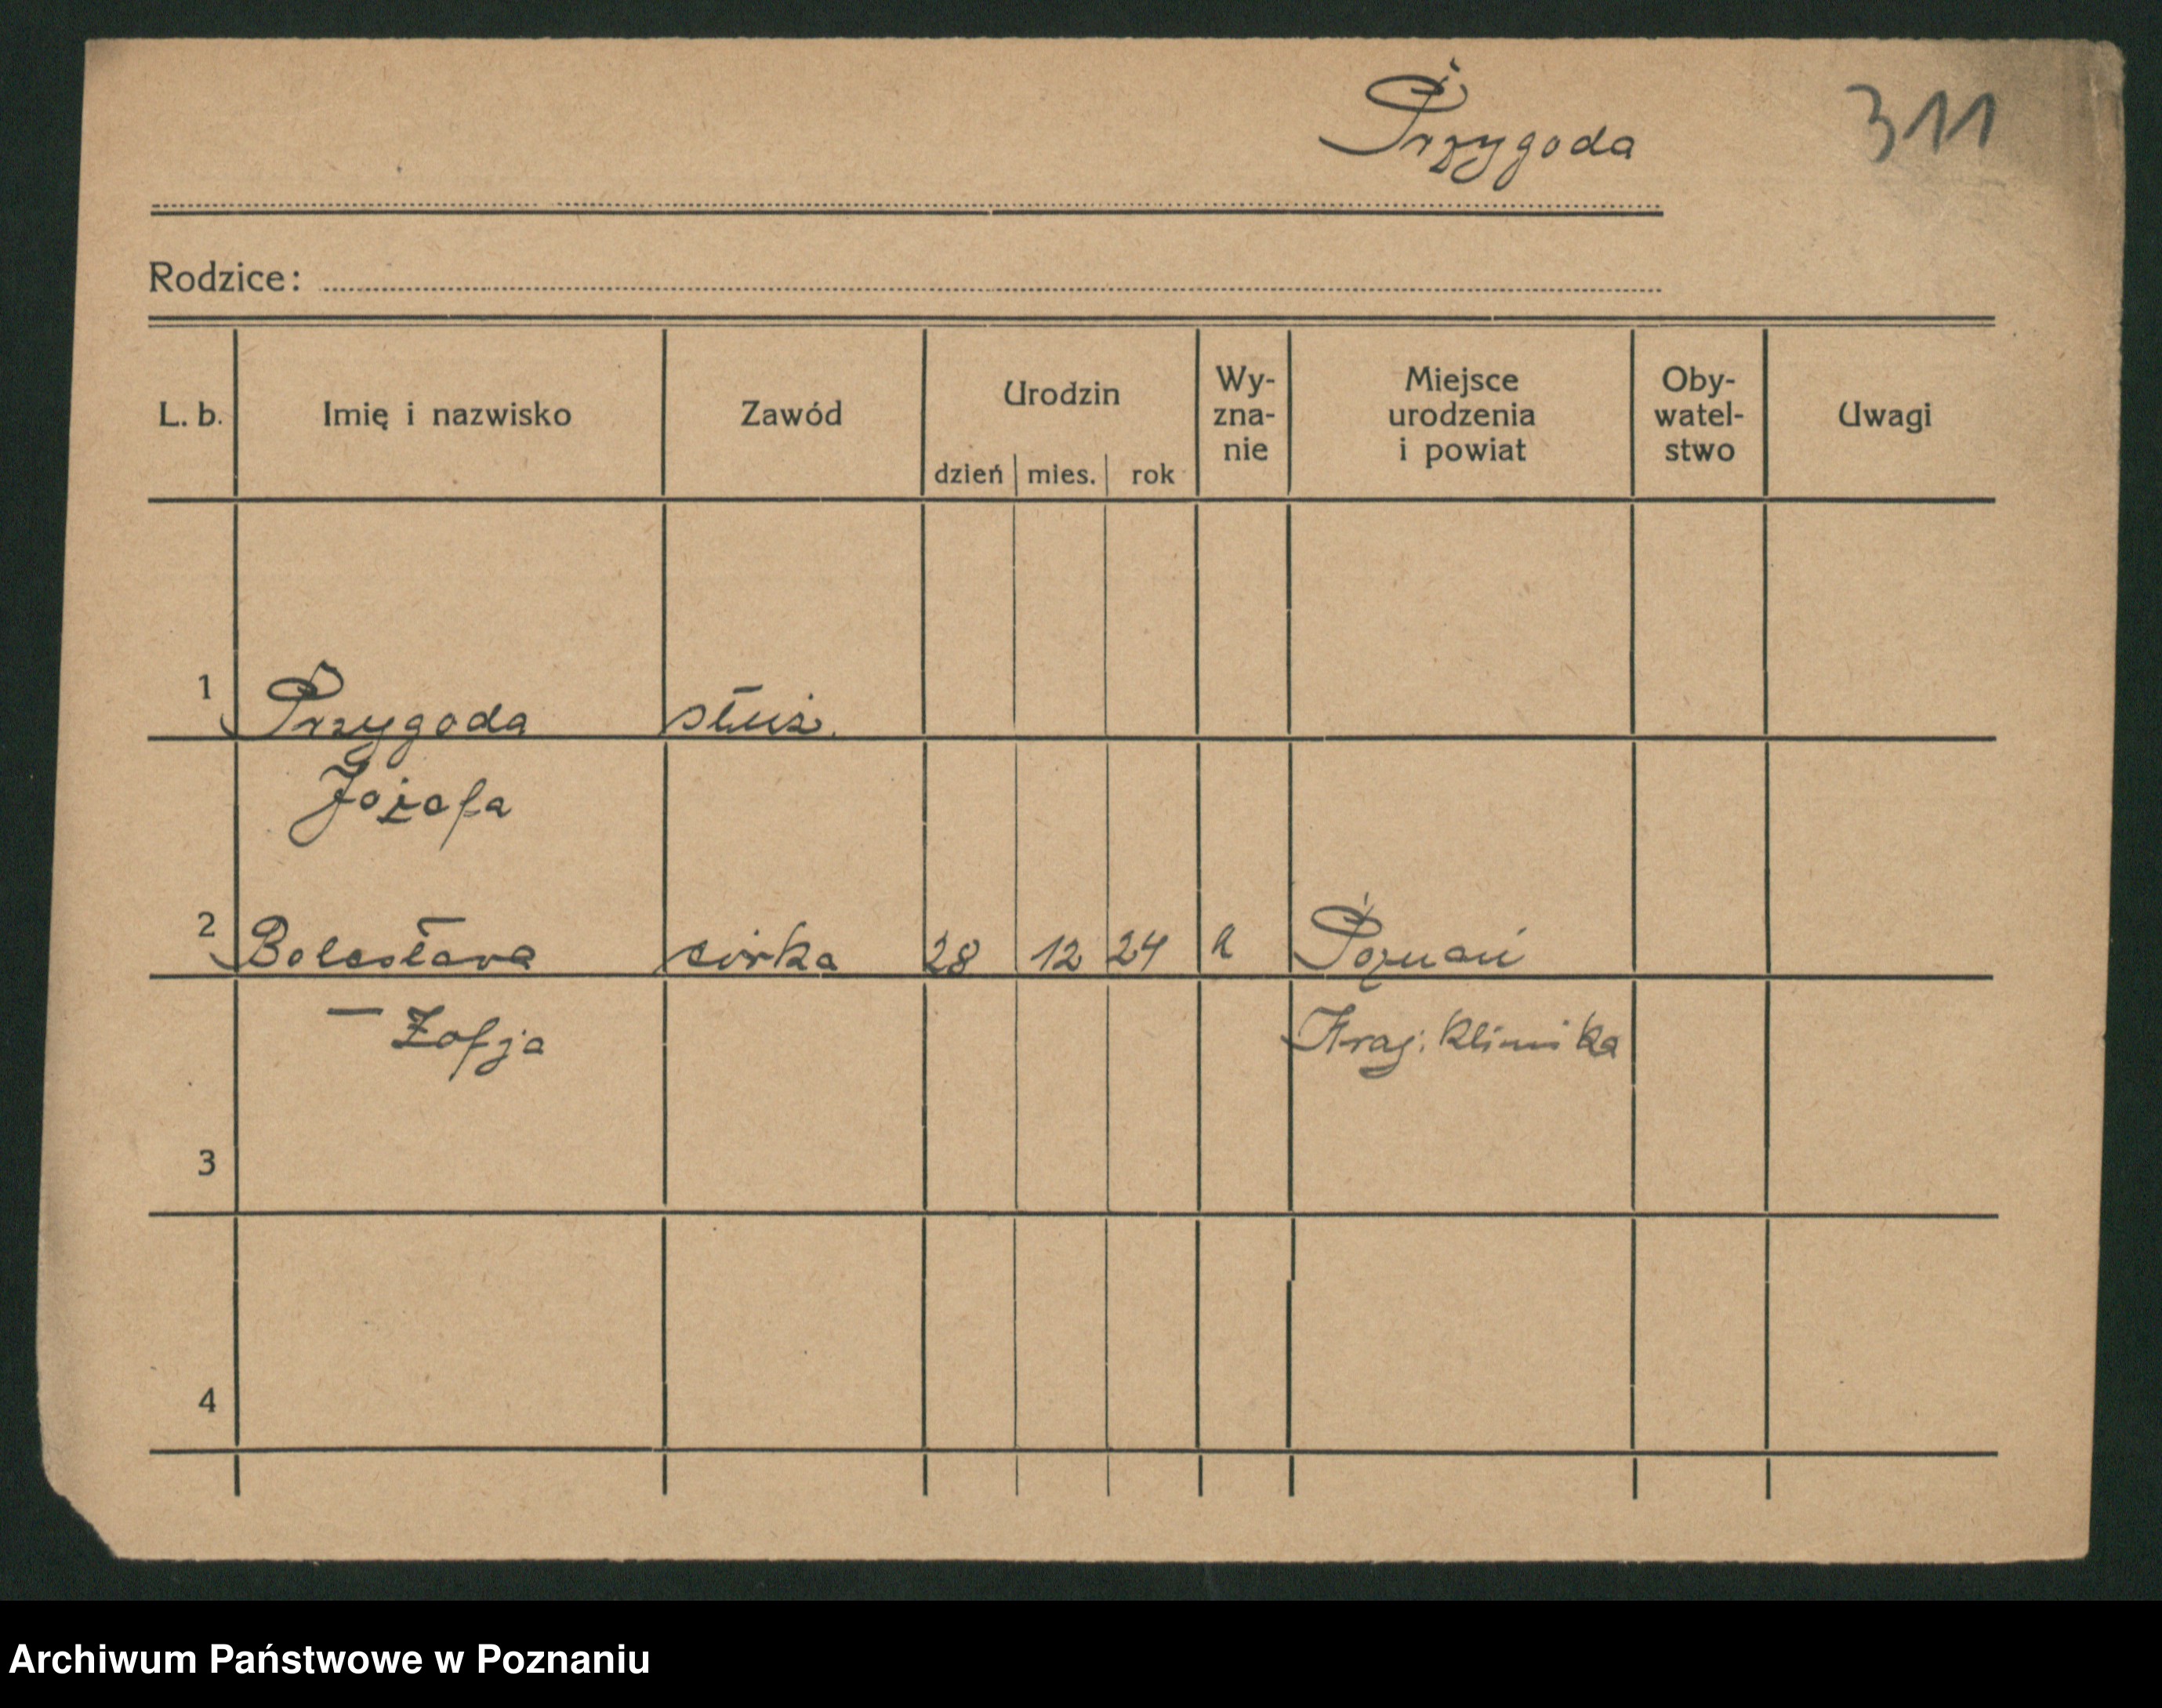 Przygoda
311
Rodzice:
L. b.
Imię i nazwisko
Zawód
Urodzin
dzień mies. rok
Wy-
zna-
nie
Miejsce
urodzenia
i powiat
Oby-
watel-
stwo
Uwagi
1 Przygoda służ.
Józefa
2 Bolesława córka 28 12 24 k Poznań
— Zofja Kraj. klinika
3
4
Archiwum Państwowe w Poznaniu